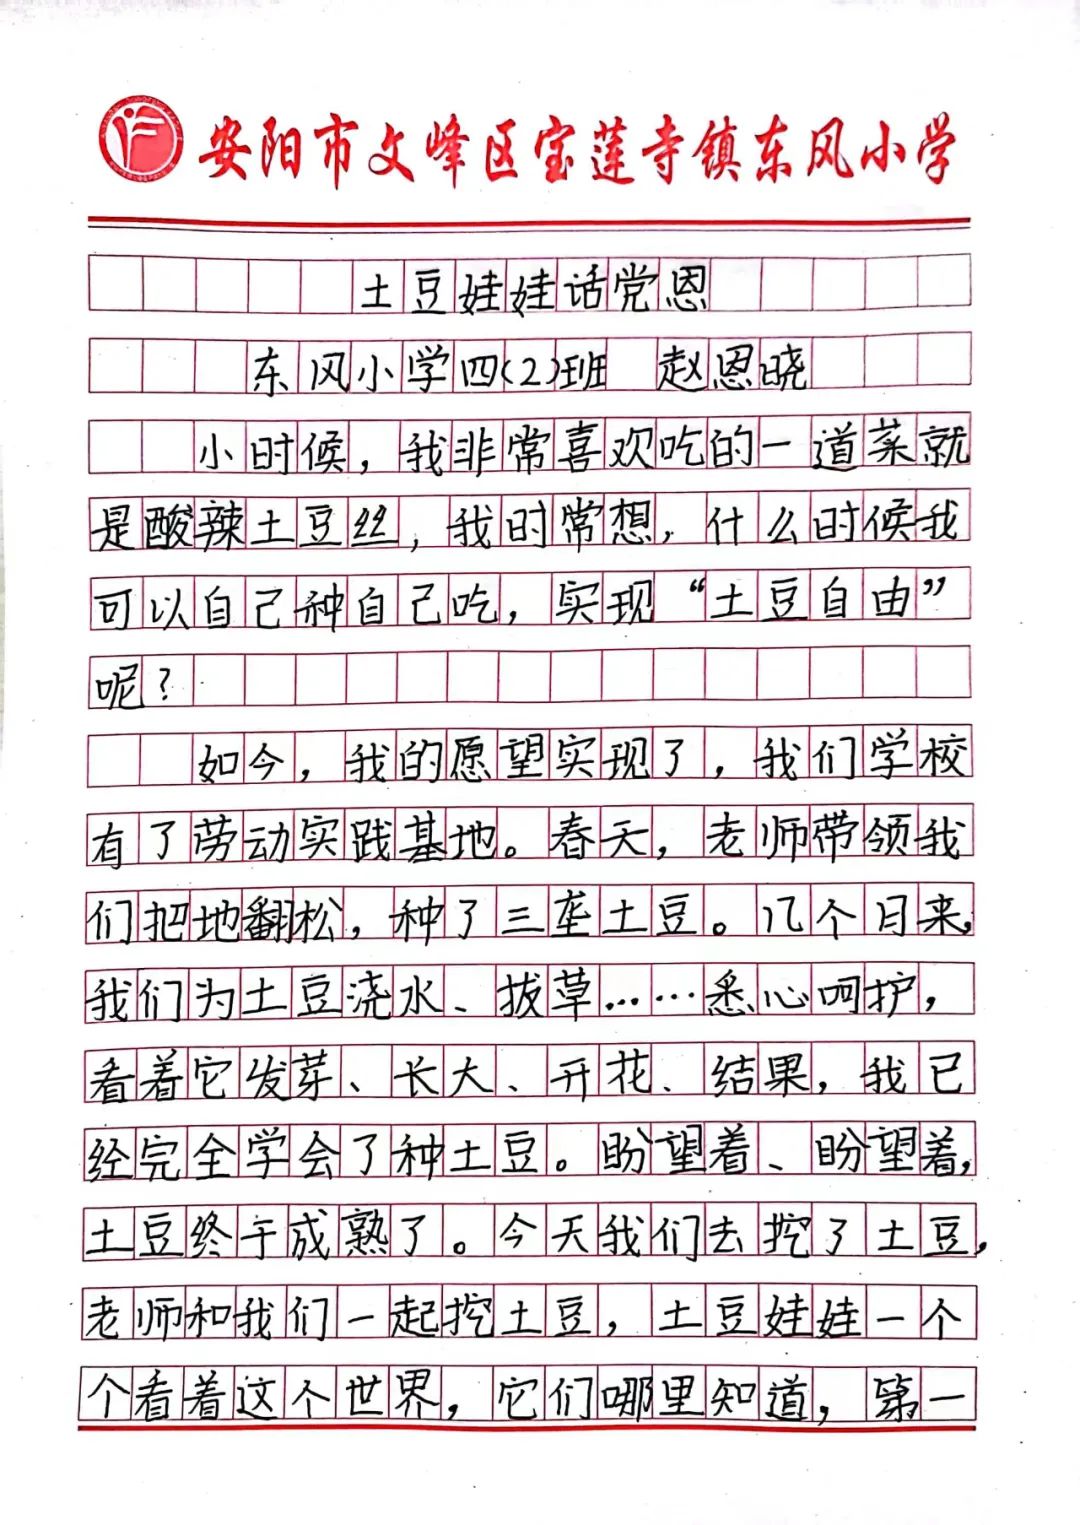 安阳市文峰区宝莲寺镇东风小学
土豆娃娃话党恩
东风小学四(2)班 赵恩晓
小时候，我非常喜欢吃的一道菜就
是酸辣土豆丝，我时常想，什么时候我
可以自己种自己吃，实现“土豆自由”
呢？
如今，我的愿望实现了，我们学校
有了劳动实践基地。春天，老师带领我
们把地翻松，种了三垄土豆。几个月来，
我们为土豆浇水、拔草……悉心呵护，
看着它发芽、长大、开花、结果，我已
经完全学会了种土豆。盼望着、盼望着，
土豆终于成熟了。今天我们去挖了土豆，
老师和我们一起挖土豆，土豆娃娃一个
个看着这个世界，它们哪里知道，第一